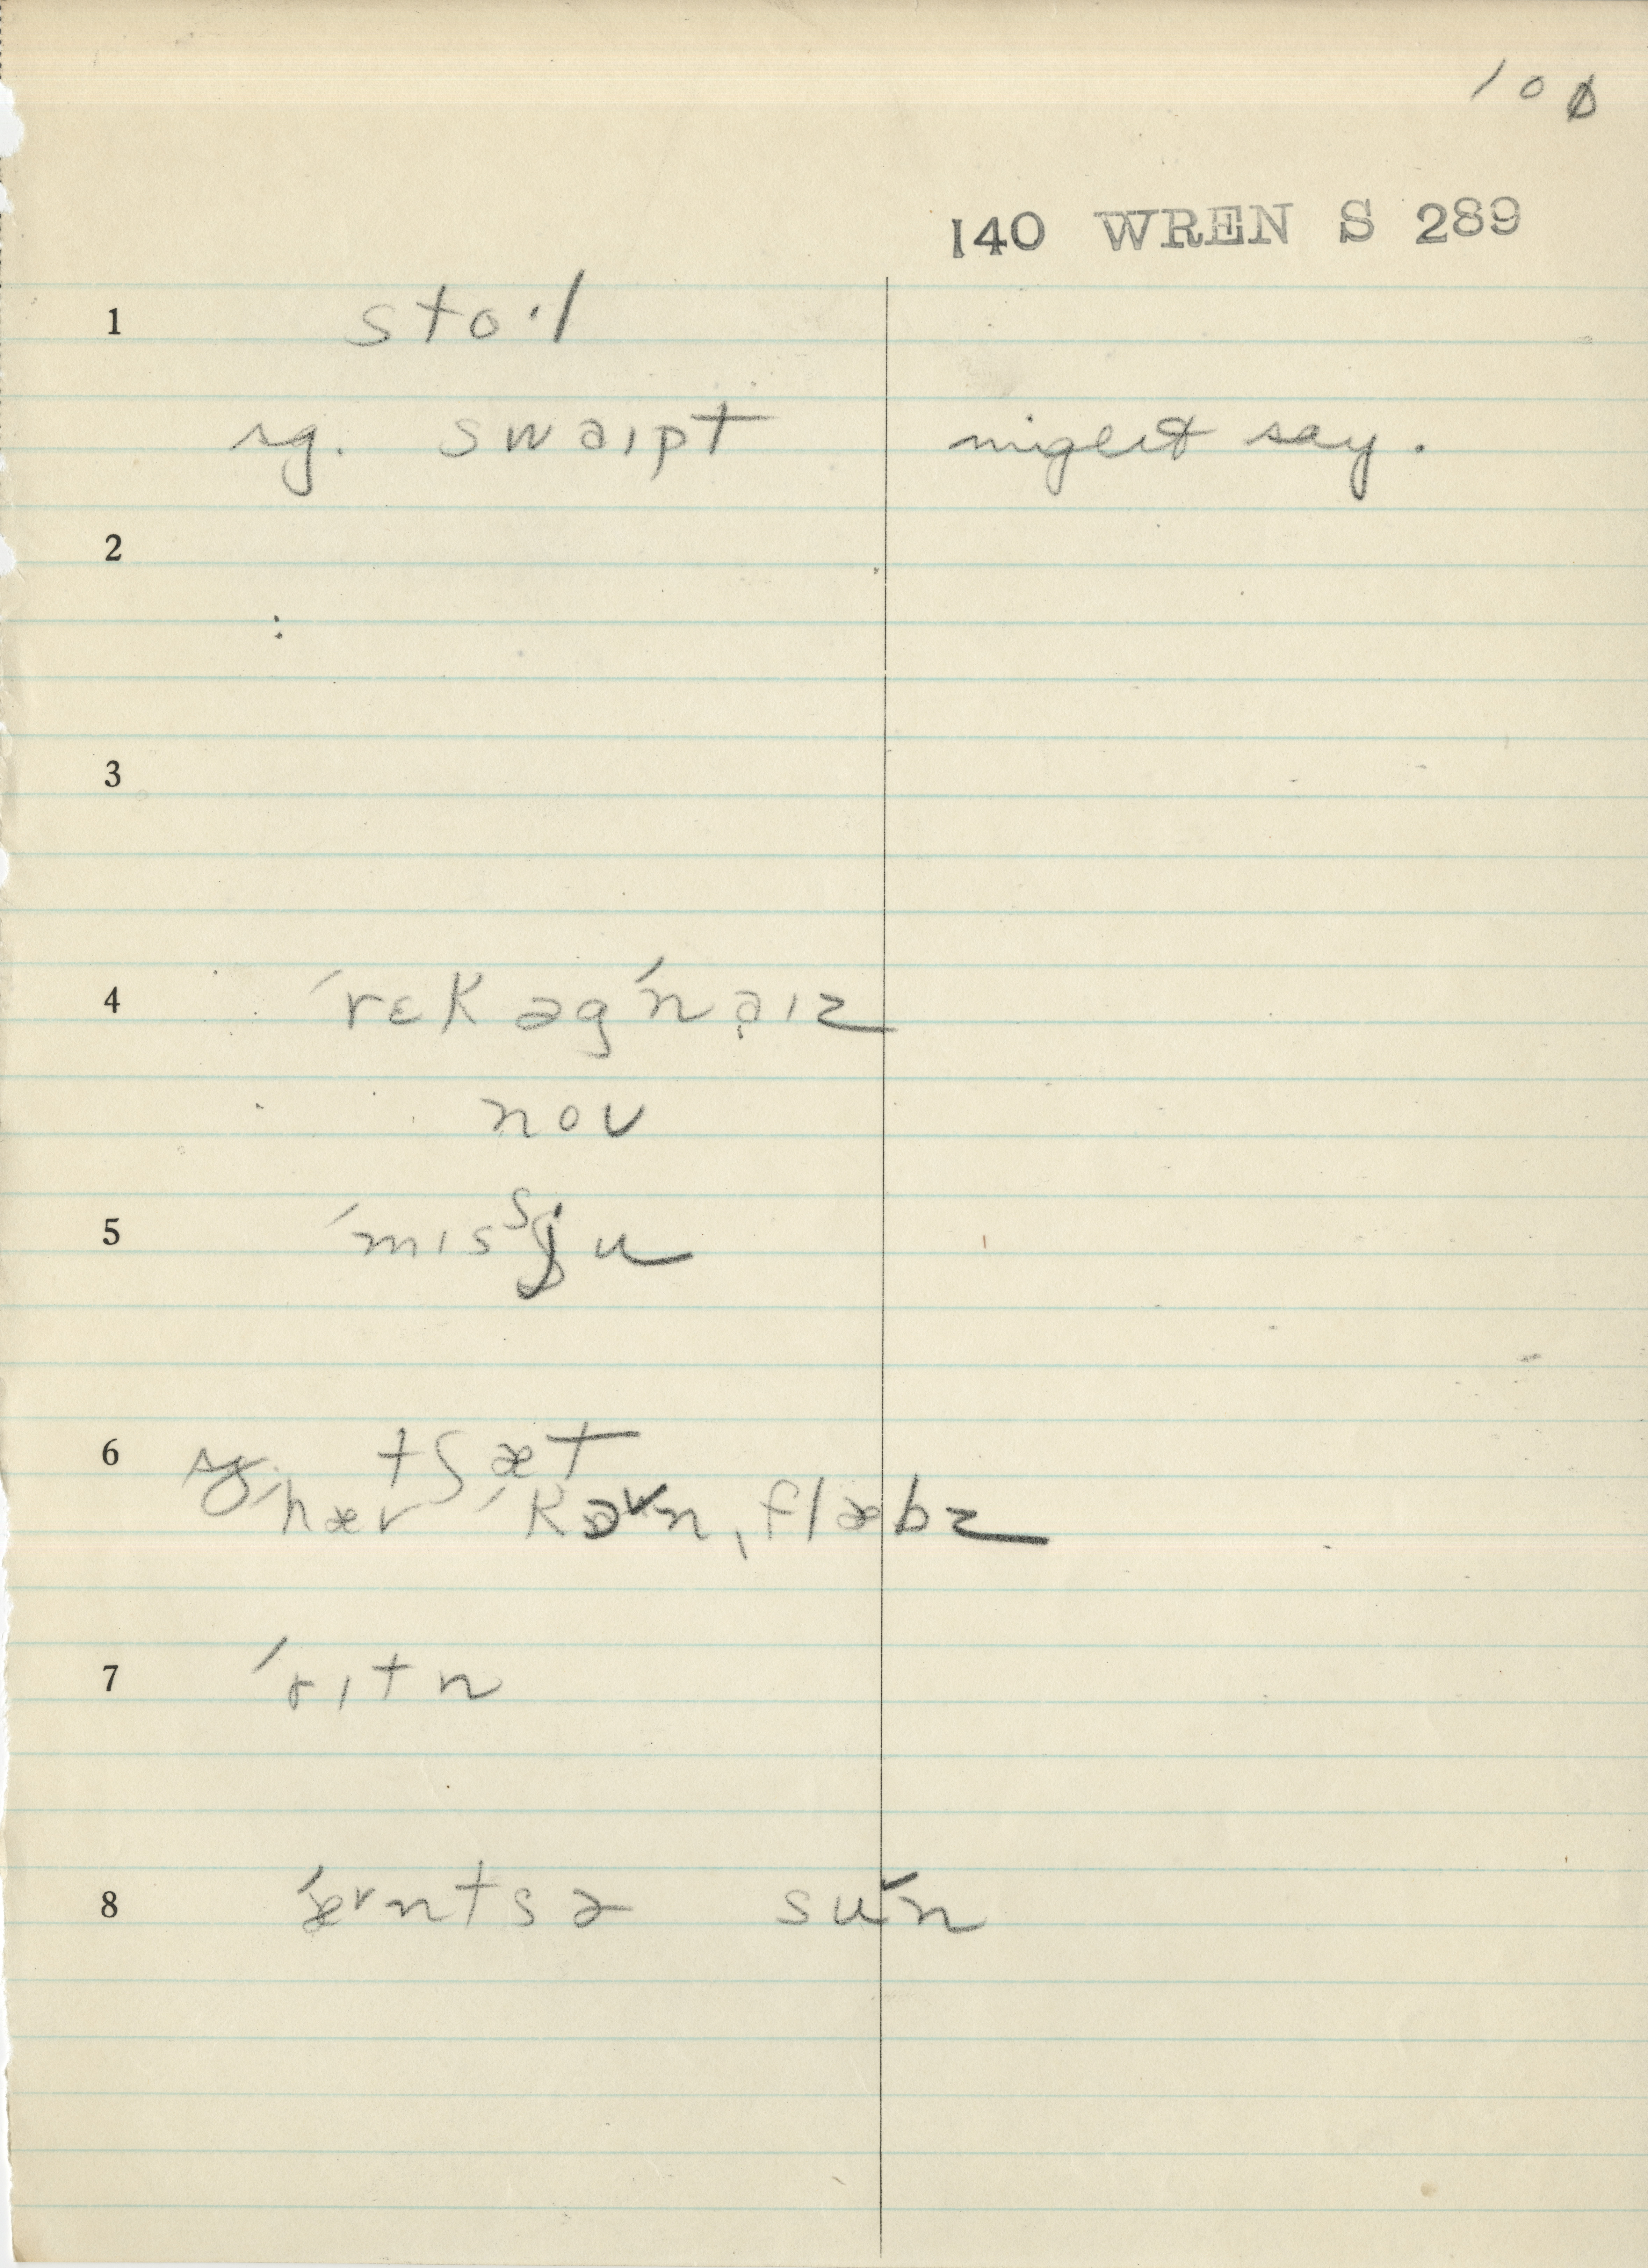 100
140 WREN S 289
1 stoˑl
sg. swaɪpt might say.
2
:
3
4 ˈrɛkəgˈnaɪz
noʊ
5 ˈmɪsʃju
6 sg. tʃæt
ˈhær ˈkaʊnˌflæbz
7 ˈrɪtn
8 ˈærntsə suˈn